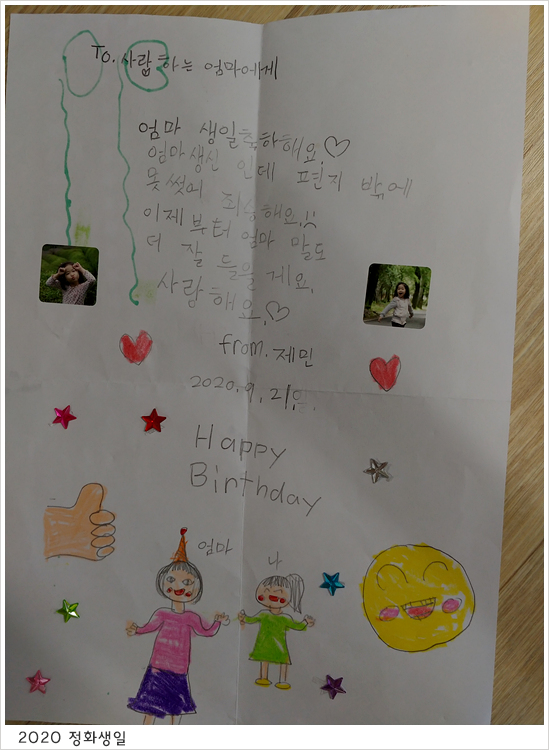 To. 사랍하는 엄마에게
엄마 생일축하해요.♡
엄마생신 인데 편지 밖에
못썼어 죄송해요.
이제부터 엄마 말도
더 잘 들을게요.
사람해요.♡
from. 제민
2020.9.21일.
Happy
Birthday
엄마
나
2020 정화생일